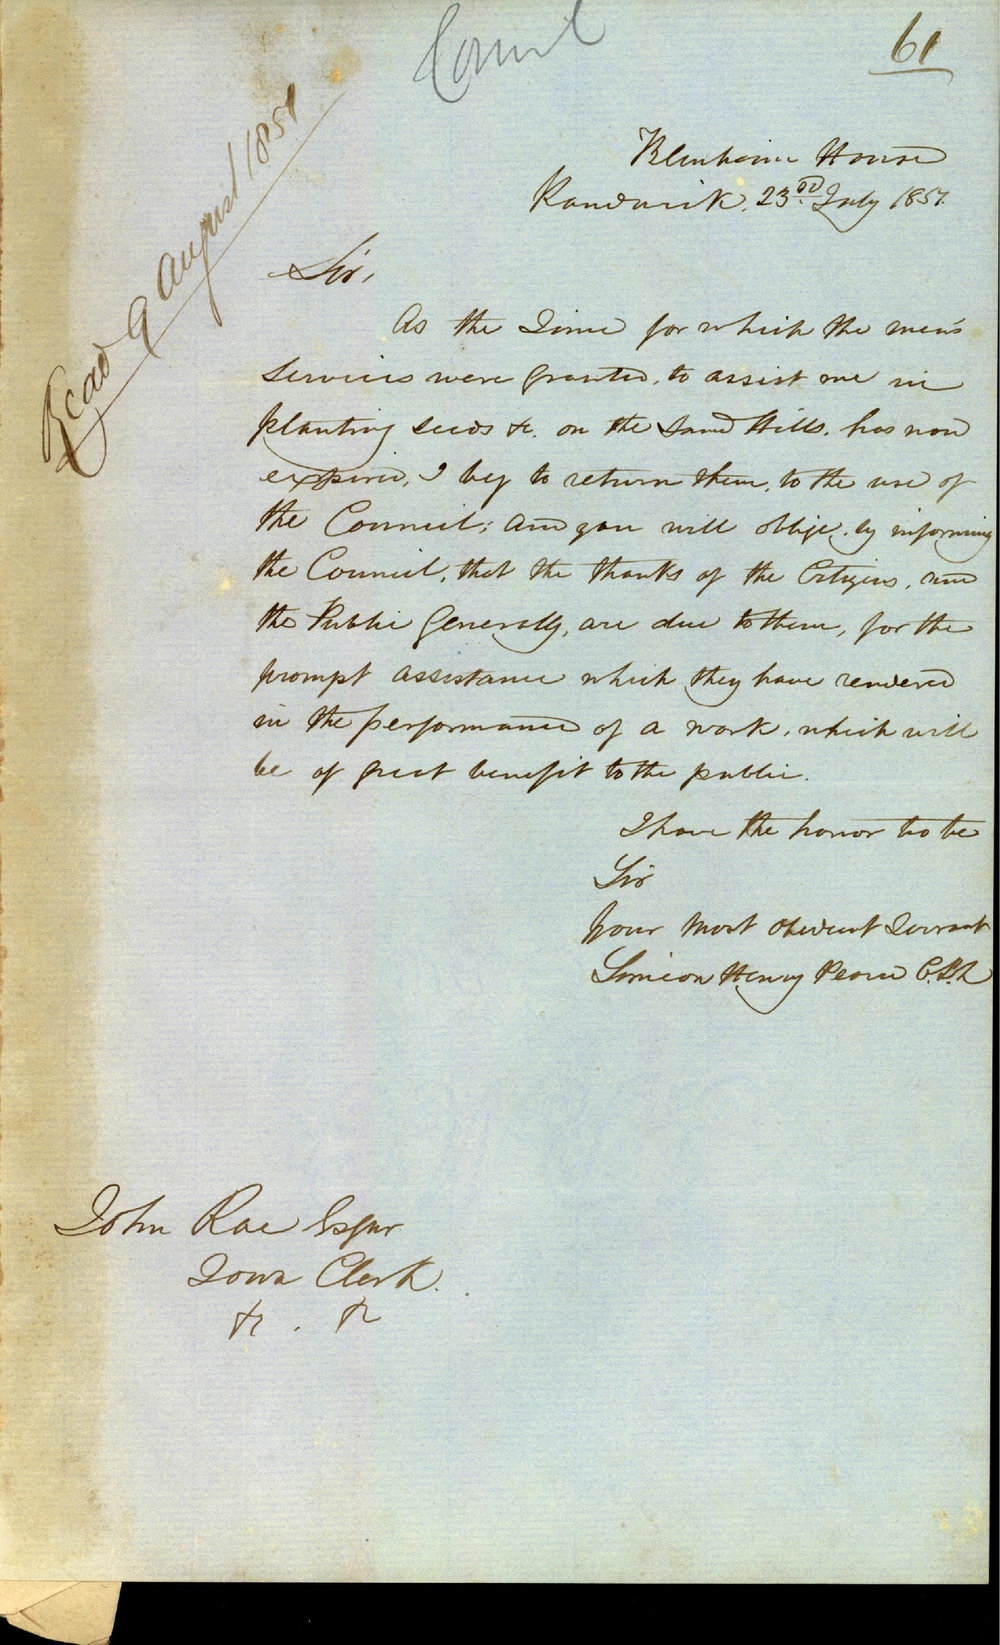 Council
61
Read 9 August 1858
Blenheim House
Randwick, 23rd July 1857.
Sir,
As the Time for which the men's
Services were granted, to assist me in
planting seeds &c. on the Sand Hills, has now
expired, I beg to return them, to the use of
the Council; and you will oblige, by informing
the Council, that the thanks of the Citizens, and
the Public Generally, are due to them, for the
prompt assistance which they have rendered
in the performance of a work, which will
be of great benefit to the public.
I have the honor to be
Sir
Your Most Obedient Servant
Simeon Henry Pearce C.C.L
John Rae Esqur
Town Clerk.
&c . &c